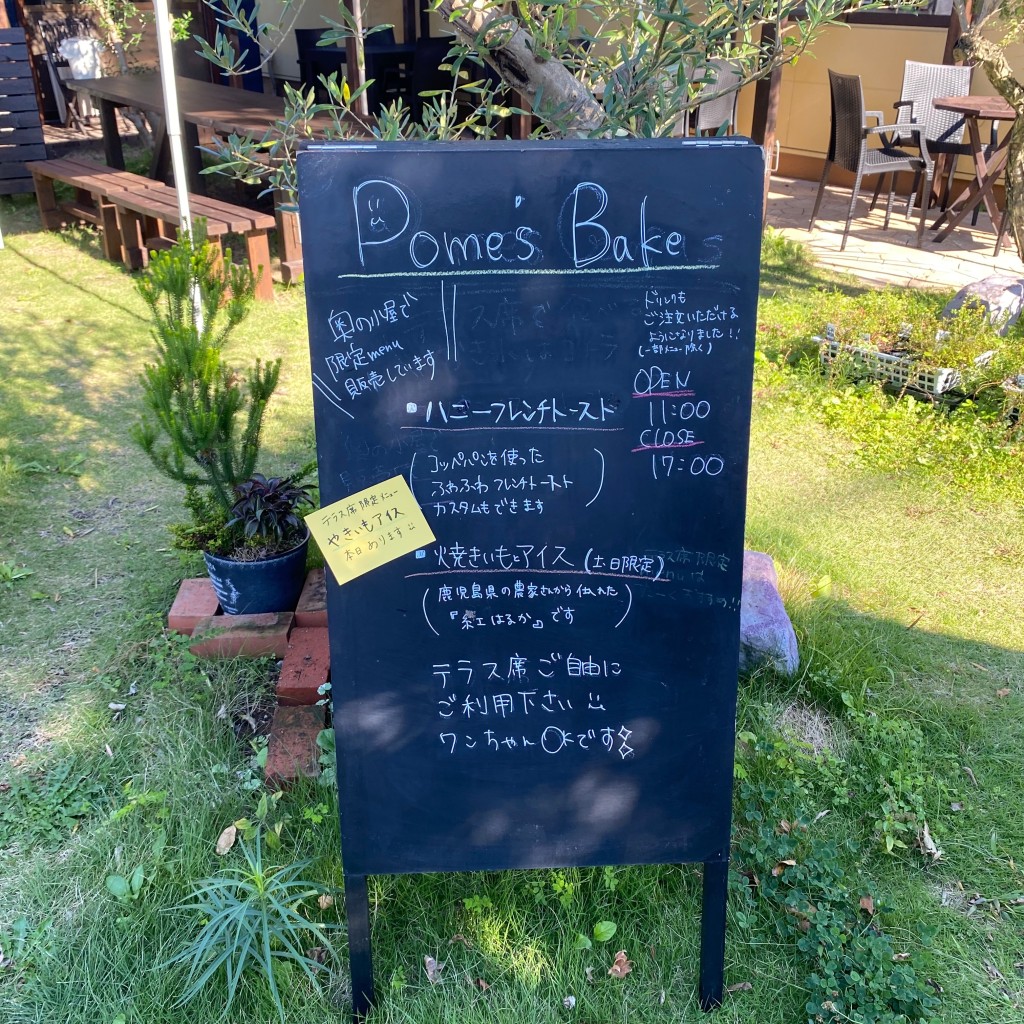 Pome's Bake
奥の小屋で
限定menu
販売しています
ドリンクも
ご注文いただける
ようになりました!!
(一部メニュー除く)
OPEN
11:00
CLOSE
17:00
ハニーフレンチトースト
(コッペパンを使った
ふわふわフレンチトースト
カスタムもできます)
テラス席限定メニュー
やきいもアイス
本日あります
焼きいもとアイス(土・日限定)
(鹿児島県の農家さんから仕入れた
『紅はるか』です)
テラス席ご自由に
ご利用下さい
ワンちゃんOKです